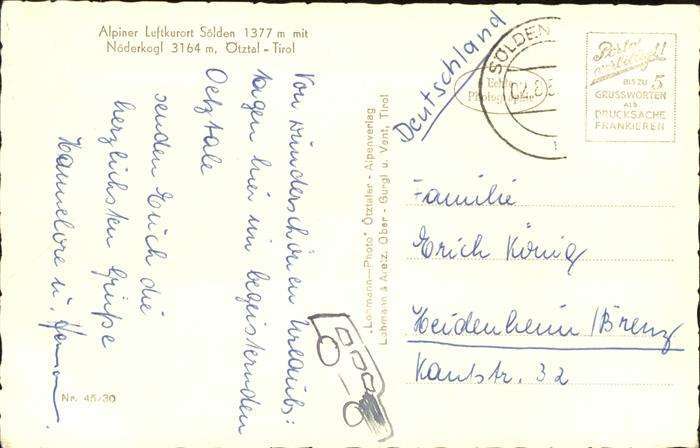 Alpiner Luftkurort Sölden 1377 m mit
Nöderkogl 3164 m, Ötztal - Tirol
Von wunderschönen Urlaubs-
tagen hier im begeisternden
Oetztale
senden Euch die
herzlichsten Grüße
Hannelore u.
Nr. 45/30
"Lohmann—Photo" Ötztaler - Alpenverlag
Lohmann & Aretz, Ober - Gurgl u. Vent, Tirol
Deutschland
Echte
Photographie
SÖLDEN
Postal
BIS ZU 5
GRUSSWORTEN
ALS
DRUCKSACHE
FRANKIEREN
Familie
Erich König
Heidenheim/Brenz
Kantstr. 32